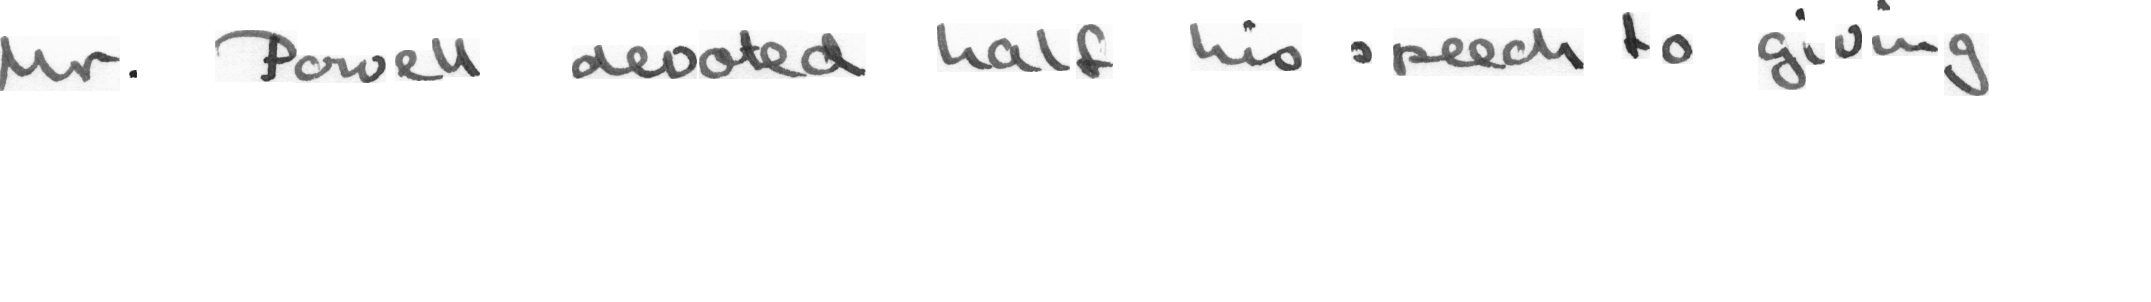 Mr. Powell devoted half his speech to giving